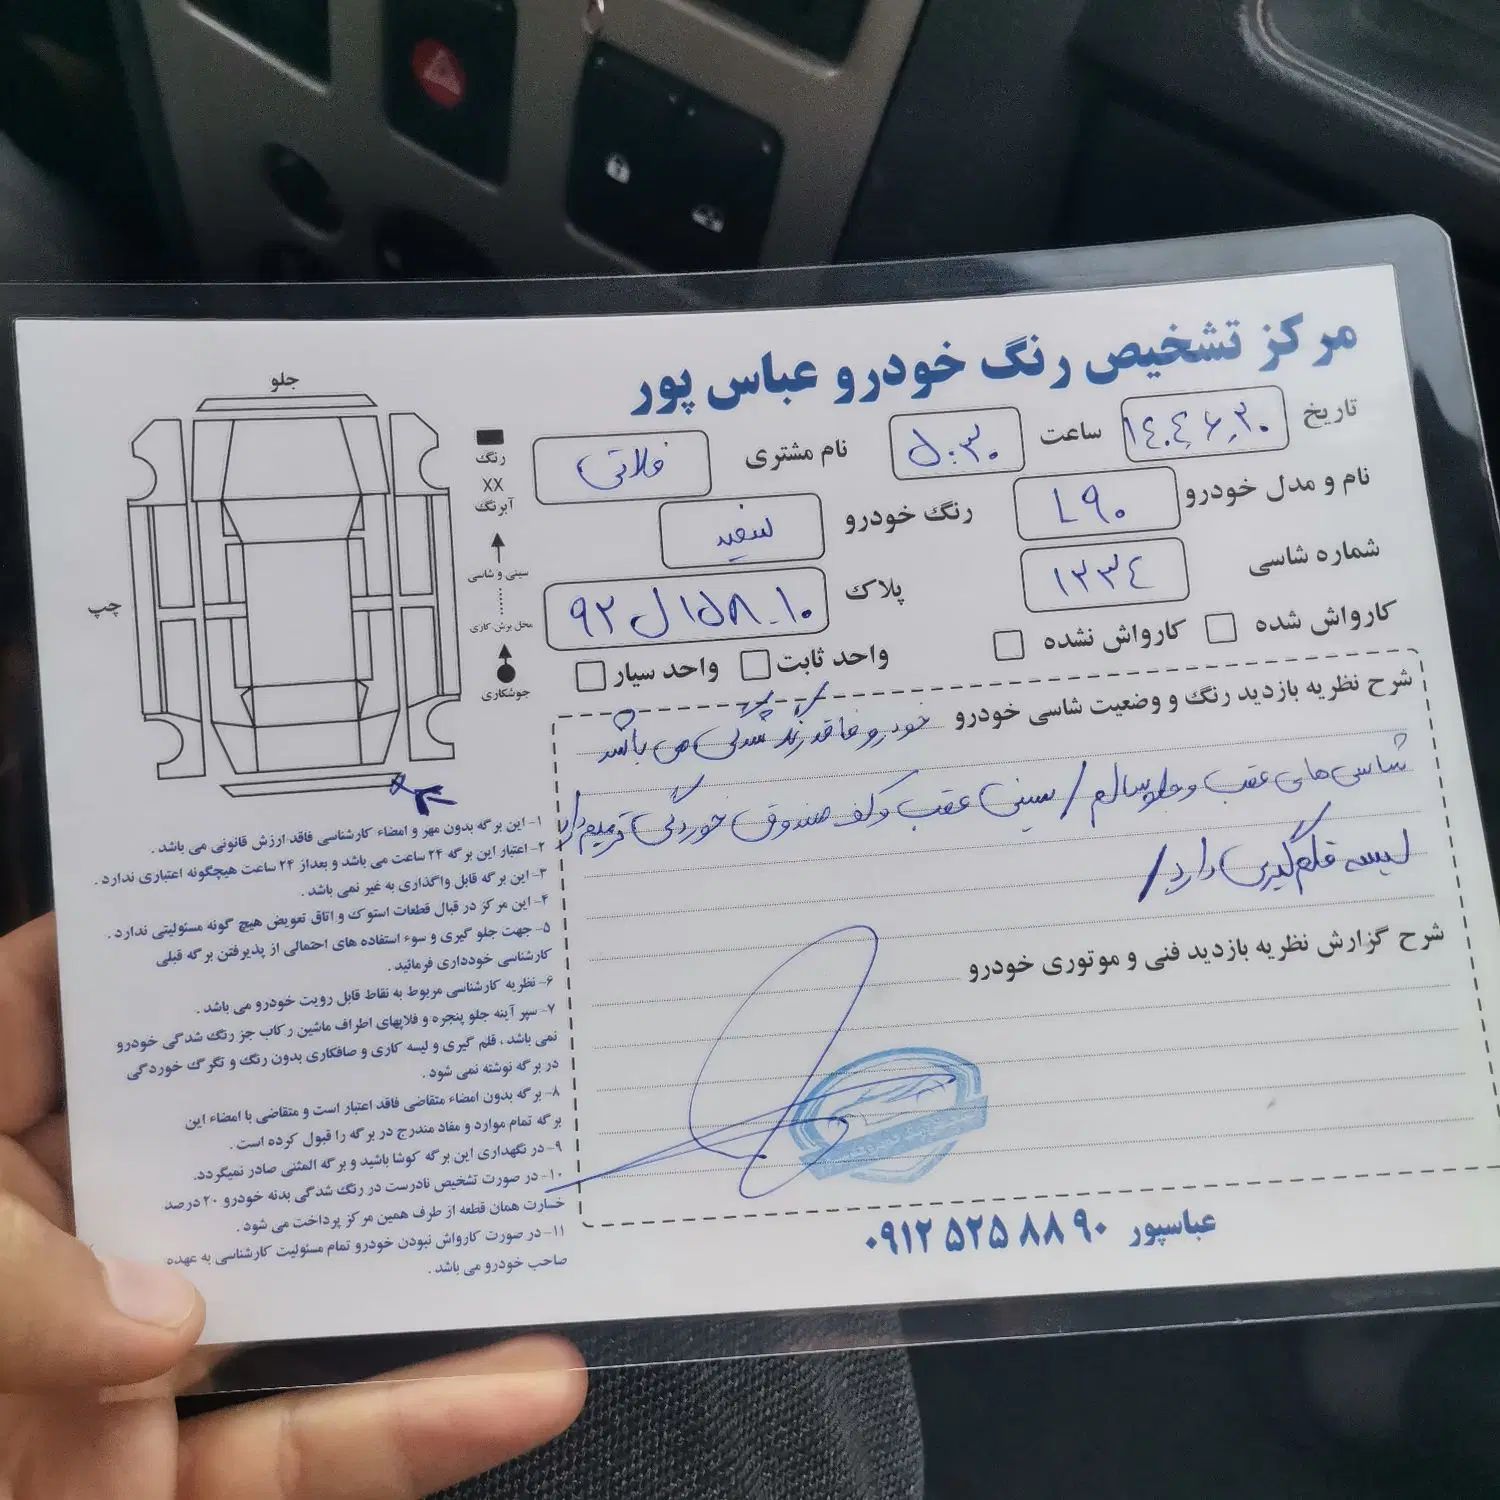 مرکز تشخیص رنگ خودرو عباس پور
تاریخ ۱۴۰۴٫۶٫۳۰ ساعت ۵:۳۰ نام مشتری فلاتی
نام و مدل خودرو L۹۰ رنگ خودرو سفید
شماره شاسی ۱۳۳۴ پلاک ۱۰_۱۵۸ل۹۲
کارواش شده کارواش نشده واحد ثابت واحد سیار
جلو
چپ
رنگ
XX
آبرنگ
سینی و شاسی
محل برش کاری
جوشکاری
شرح نظریه بازدید رنگ و وضعیت شاسی خودرو خودرو فاقد رنگ شدگی می باشد
شاسی های عقب و جلو سالم / سینی عقب و کف صندوق خوردگی ترمیم دارد
لیسه قلم گیری دارد/
شرح گزارش نظریه بازدید فنی و موتوری خودرو
عباسپور ۰۹۱۲ ۵۲۵ ۸۸ ۹۰
۱- این برگه بدون مهر و امضاء کارشناسی فاقد ارزش قانونی می باشد .
۲- اعتبار این برگه ۲۴ ساعت می باشد و بعداز ۲۴ ساعت هیچگونه اعتباری ندارد .
۳- این برگه قابل واگذاری به غیر نمی باشد .
۴- این مرکز در قبال قطعات استوک و اتاق تعویض هیچ گونه مسئولیتی ندارد .
۵- جهت جلو گیری و سوء استفاده های احتمالی از پذیرفتن برگه قبلی
کارشناسی خودداری فرمائید .
۶- نظریه کارشناسی مربوط به نقاط قابل رویت خودرو می باشد .
۷- سپر آینه جلو پنجره و قلابهای اطراف ماشین رکاب جز رنگ شدگی خودرو
نمی باشد ، قلم گیری و لیسه کاری و صافکاری بدون رنگ و تگرگ خوردگی
در برگه نوشته نمی شود .
۸- برگه بدون امضاء متقاضی فاقد اعتبار است و متقاضی با امضاء این
برگه تمام موارد و مفاد مندرج در برگه را قبول کرده است .
۹- در نگهداری این برگه کوشا باشید و برگه المثنی صادر نمیگردد.
۱۰- در صورت تشخیص نادرست در رنگ شدگی بدنه خودرو ۲۰ درصد
خسارت همان قطعه از طرف همین مرکز پرداخت می شود .
۱۱- در صورت کارواش نبودن خودرو تمام مسئولیت کارشناسی به عهده
صاحب خودرو می باشد .